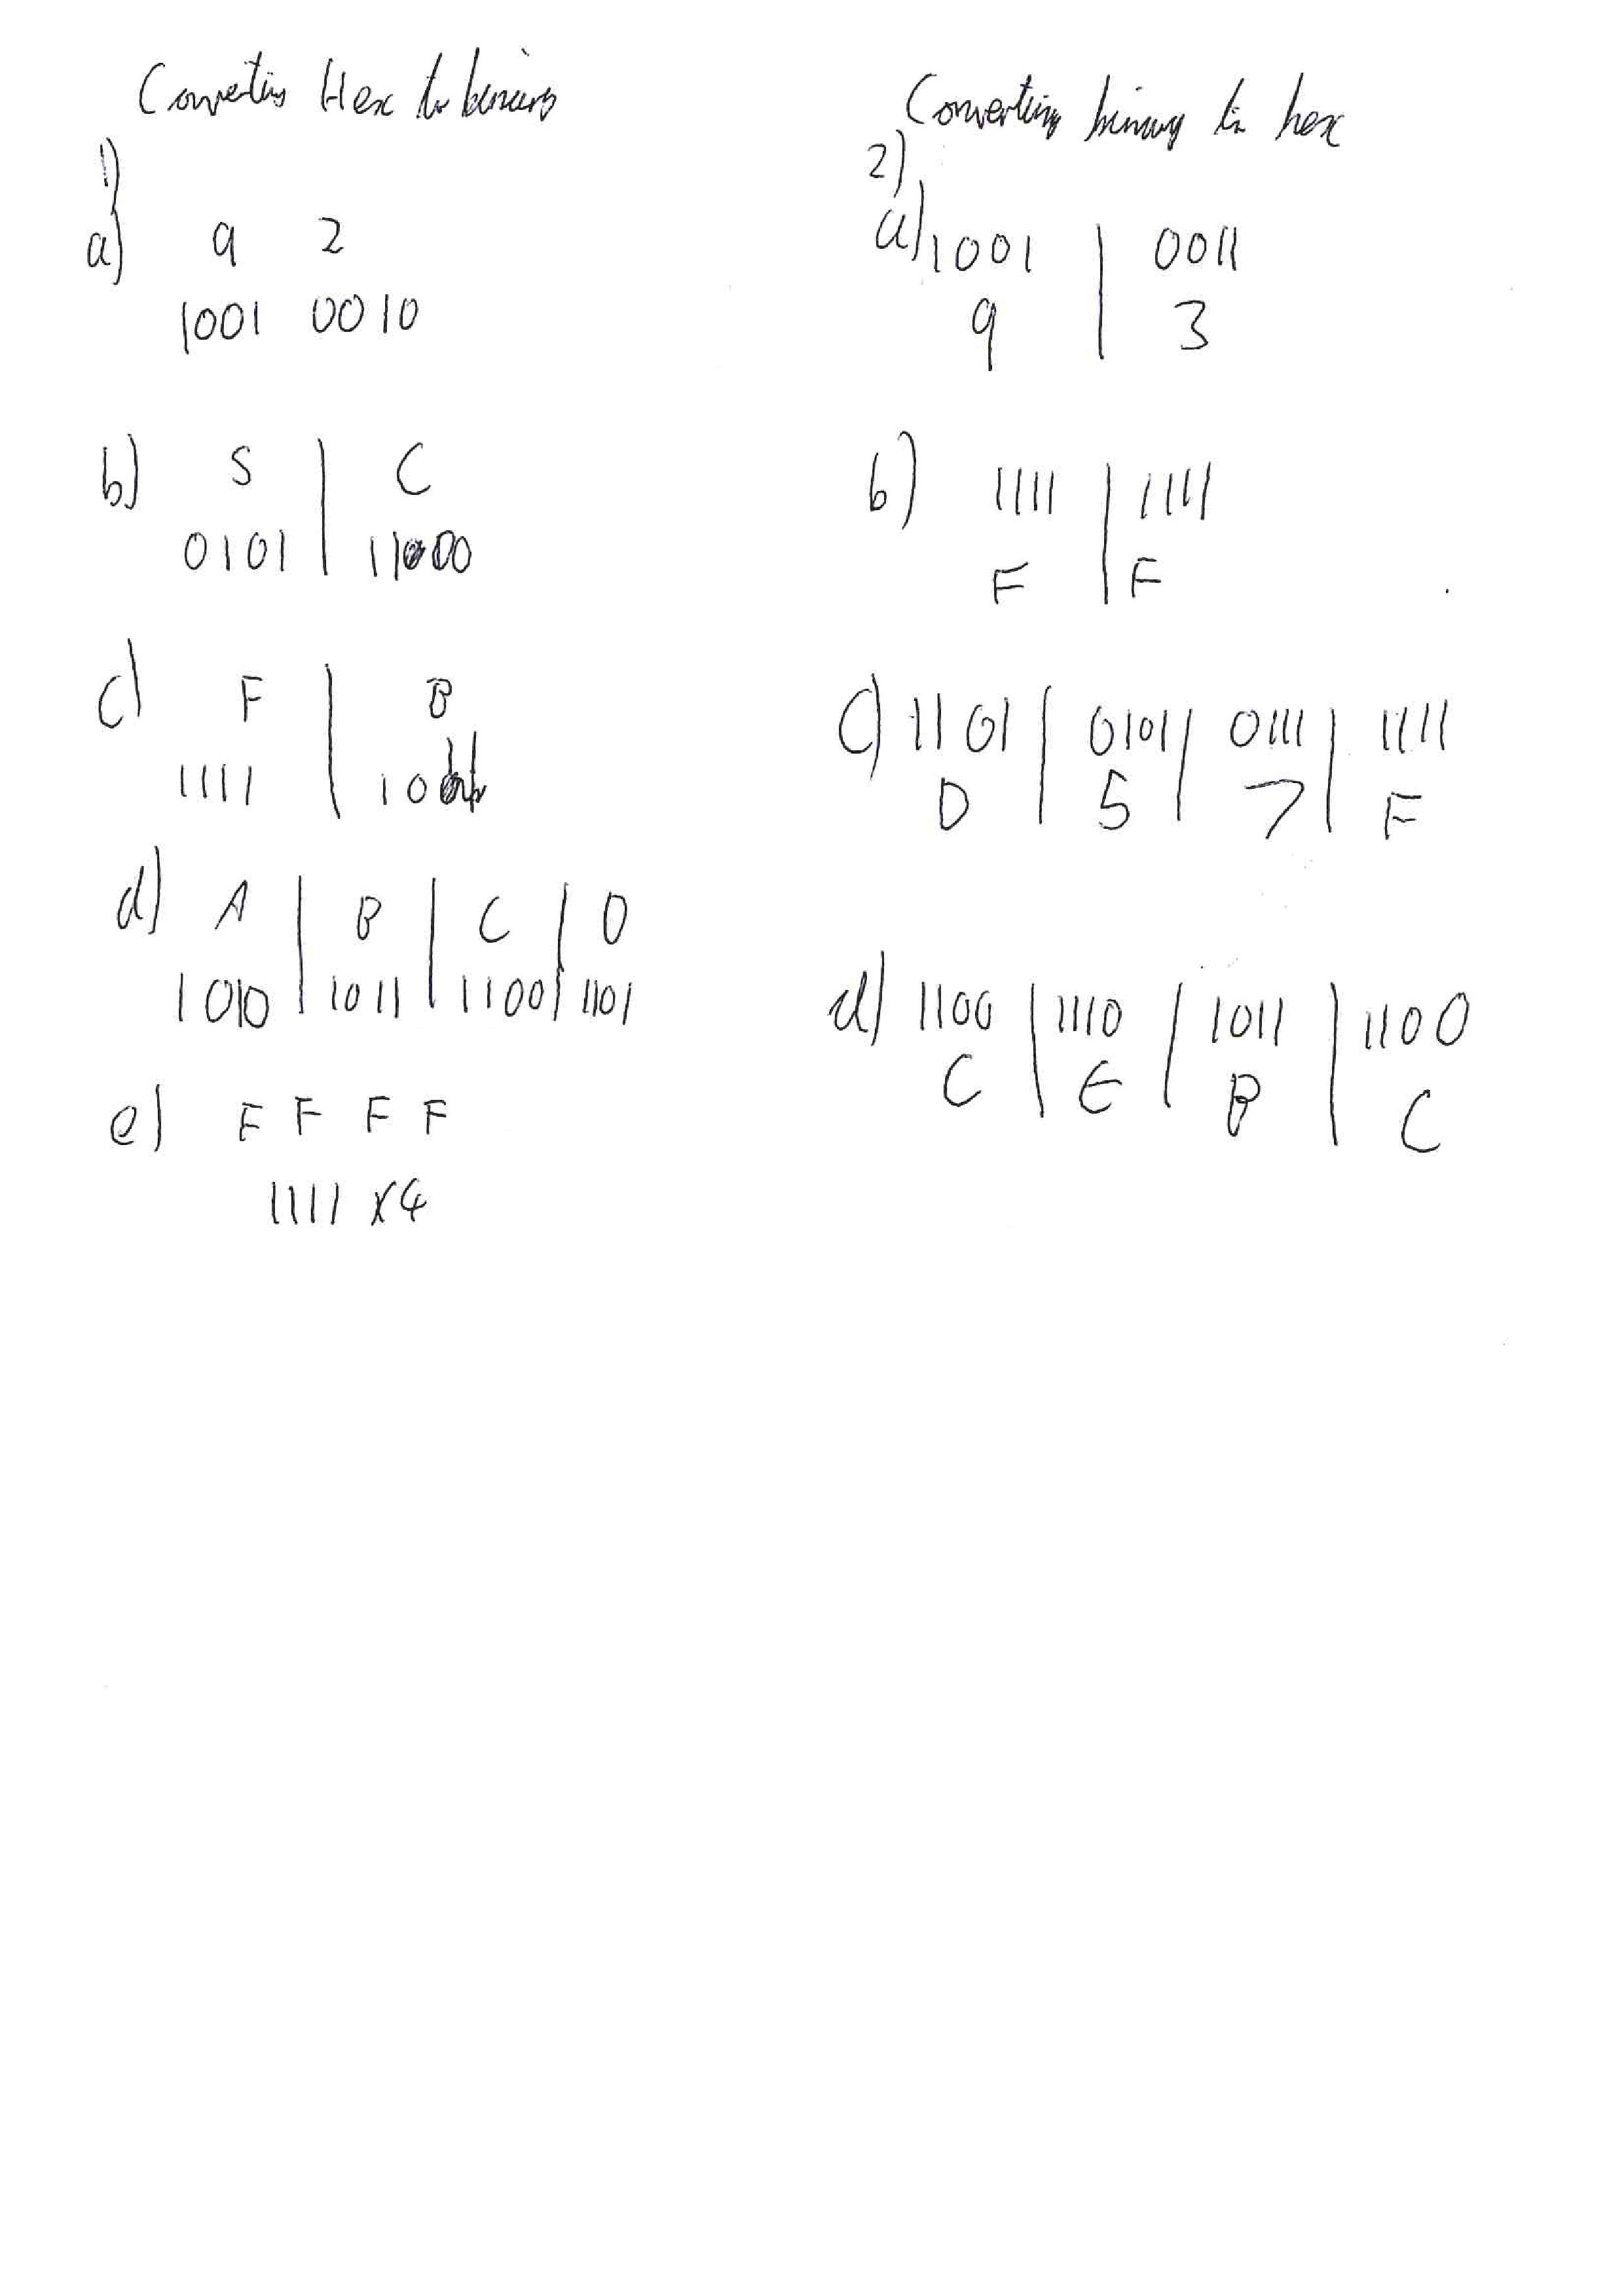 Converting Hex to binary
1)
a) 9 2
1001 0010
b) 5 | C
0101 | 1100
c) F | B
1111 | 10
d) A | B | C | D
1010 | 1011 | 1100 | 1101
e) F F F F
1111 x4
Converting binary to hex
2)
a) 1001 | 0011
9 | 3
b) 1111 | 1111
F | F
c) 1101 | 0101 | 0111 | 1111
D | 5 | 7 | F
d) 1100 | 1110 | 1011 | 1100
C | E | B | C